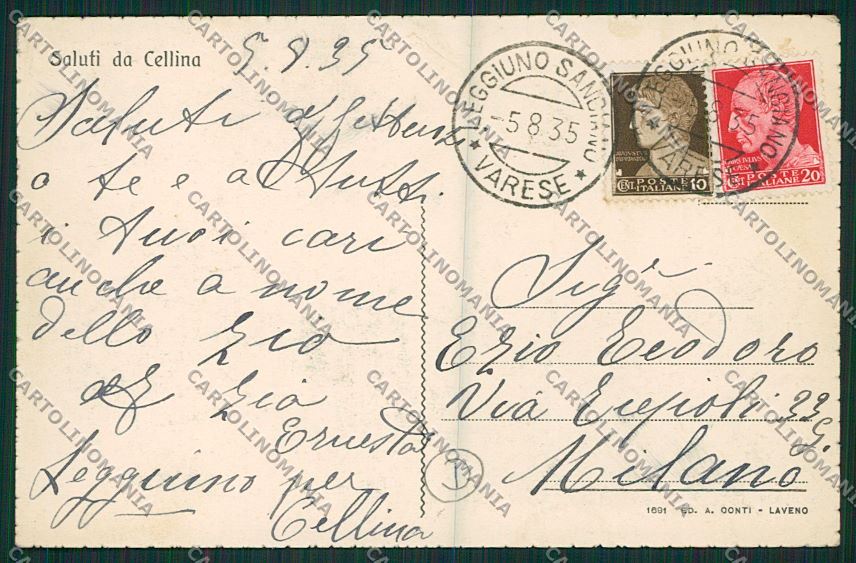 Saluti da Cellina
5.8.35
Saluti d'
a te e a tutti
i tuoi cari
anche a nome
dello zio
e zia
Ernesta
Leggiuno per
Cellina
LEGGIUNO SANGIANO
-5 8 35
* VARESE *
LEGGIUNO SANGIANO
VARESE
CENT. POSTE ITALIANE 10
POSTE ITALIANE 20
Sigr
Ezio Teodoro
Via 33
Milano
1691 - ED. A. CONTI - LAVENO
CARTOLINOMANIA